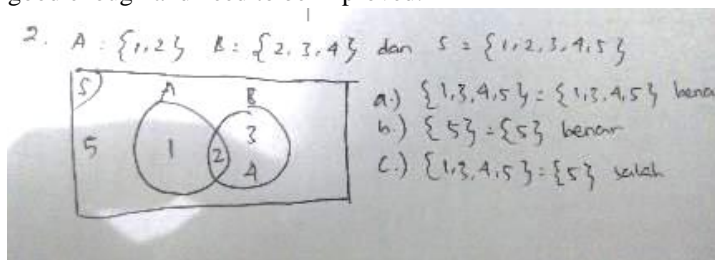 2. A = {1,2} B = {2,3,4} dan S = {1,2,3,4,5}
S A B
5 1 2 3 4
a.) {1,3,4,5} = {1,3,4,5} bena
b.) {5} = {5} benar
c.) {1,3,4,5} = {5} salah